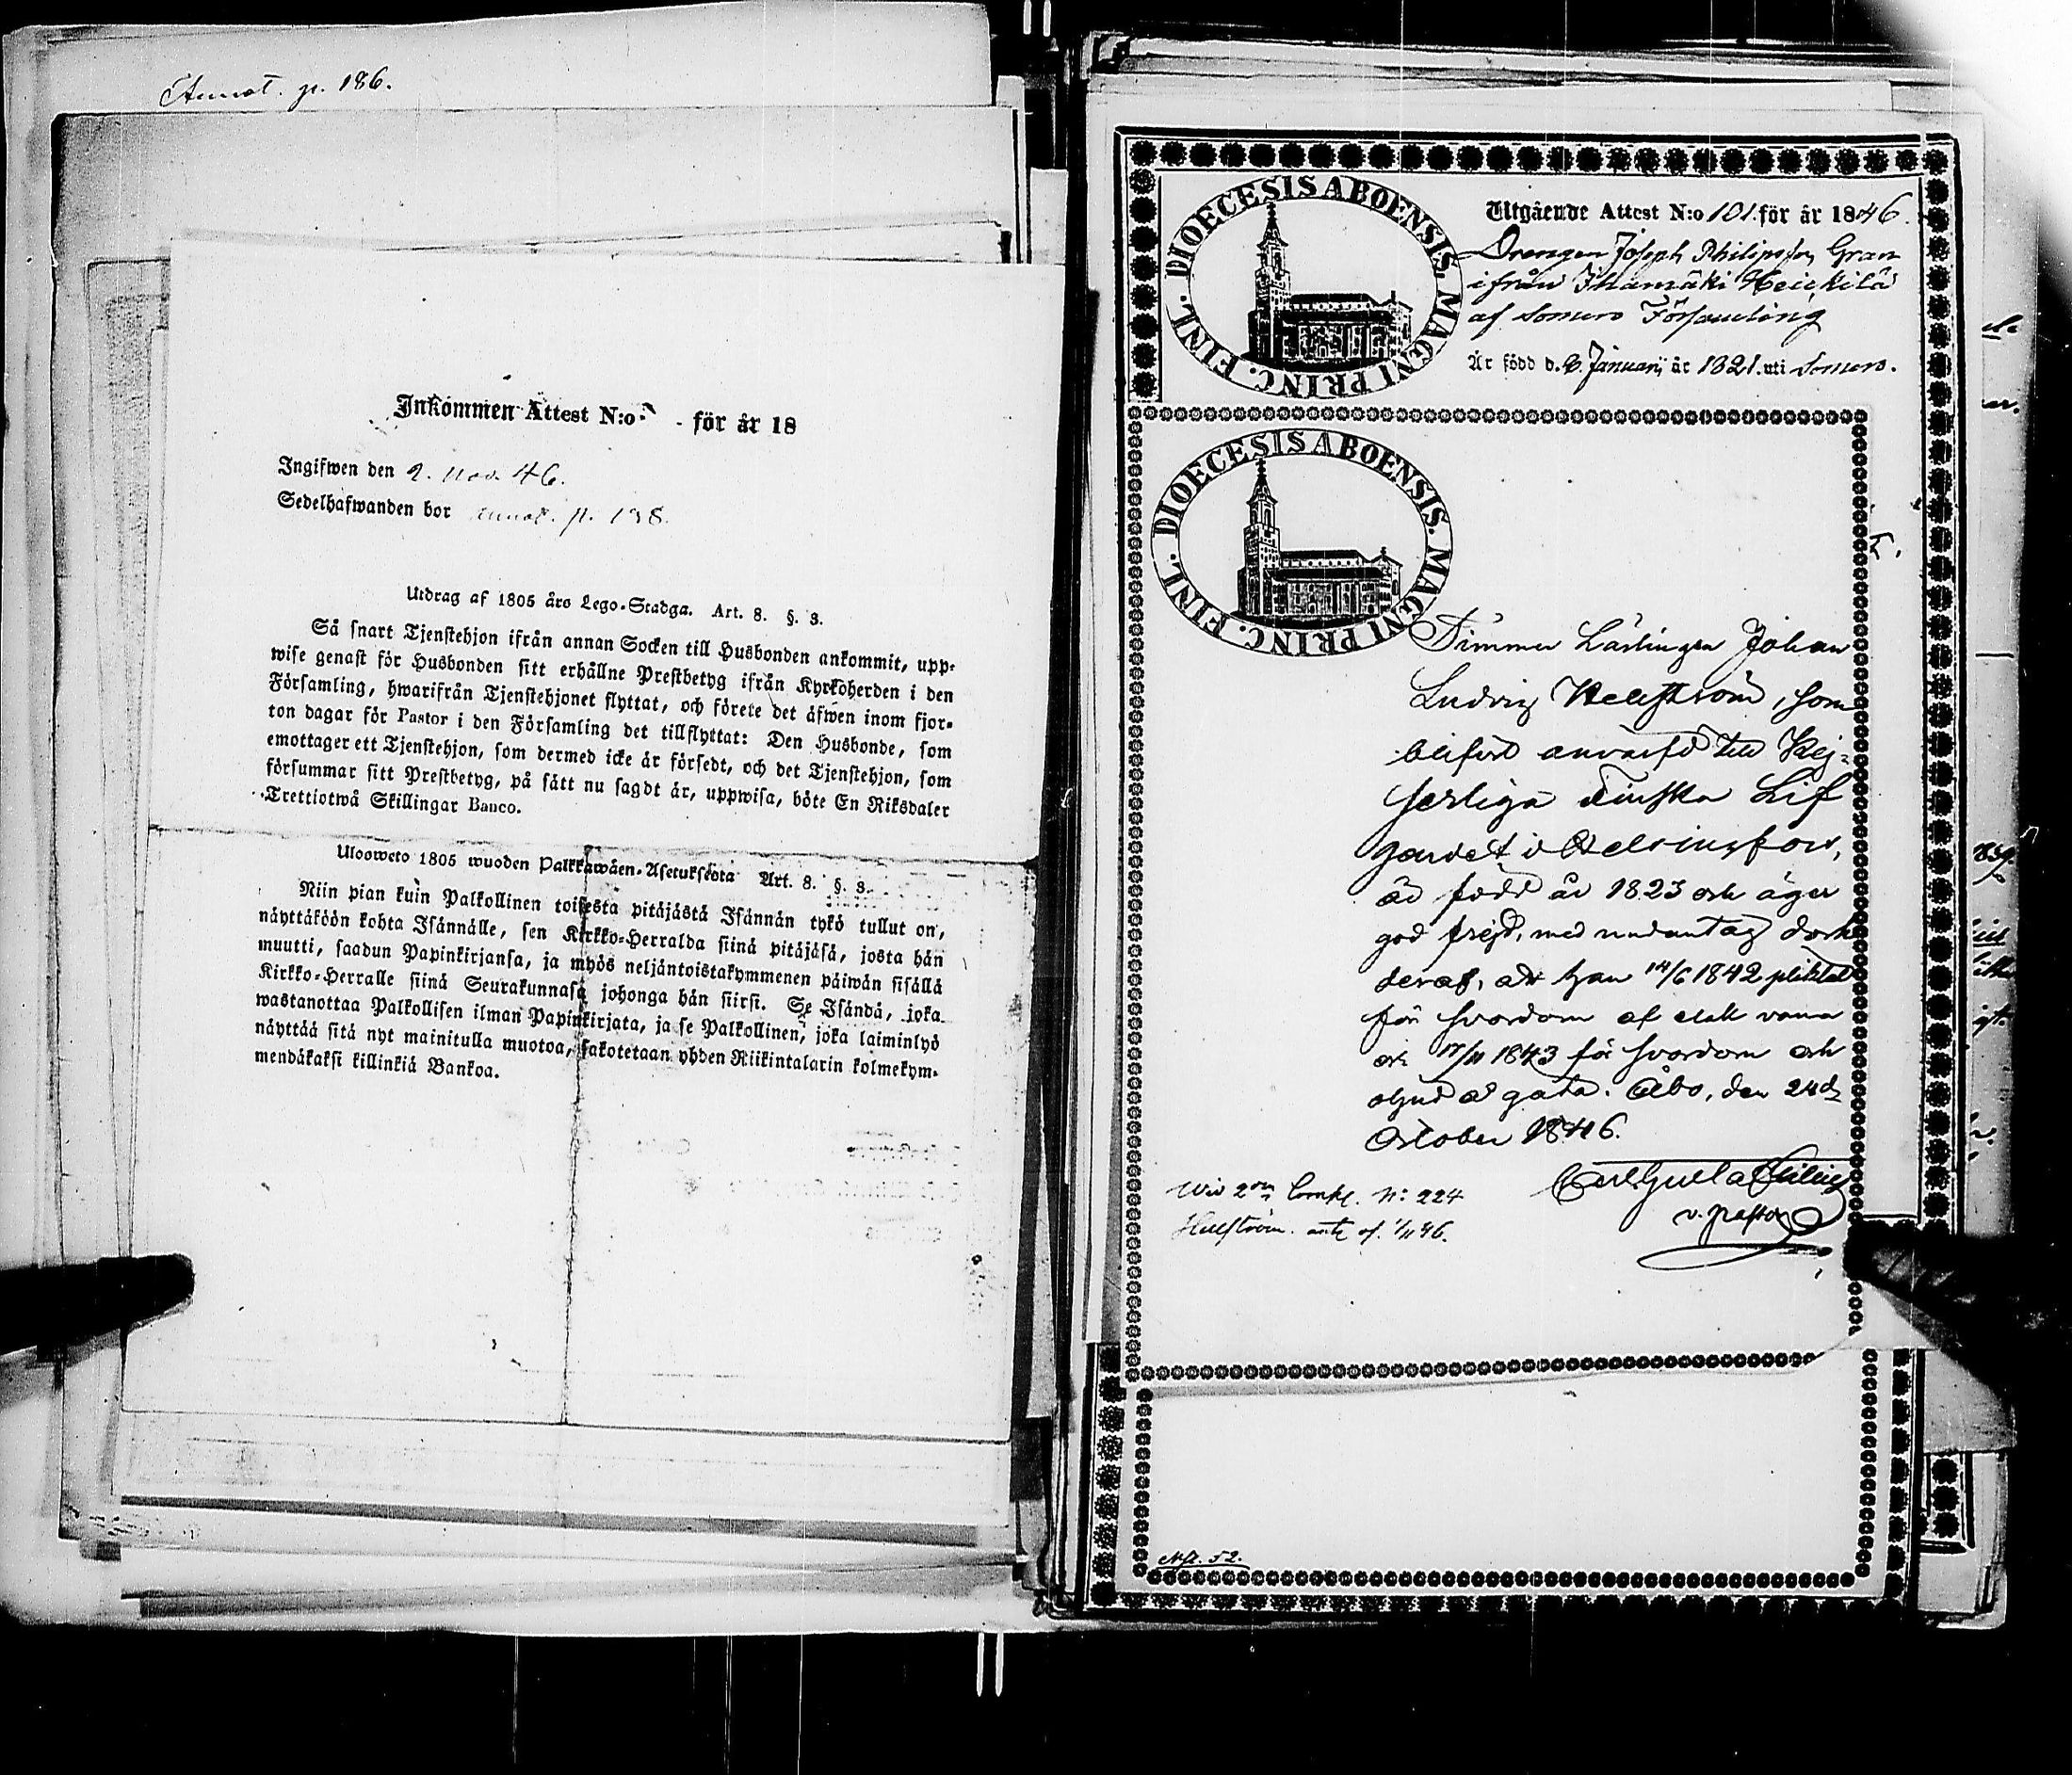 Annot. p. 186.
Inkommen Attest N:o - för år 18
Ingifwen den 2. Nov. 46.
Sedelhafwanden bor annot. p. 138.
Utdrag af 1805 års Lego-Stadga. Art. 8. §. 3.
Så snart Tjenstehjon ifrån annan Socken till Husbonden ankommit, upp-
wise genast för Husbonden sitt erhållne Prestbetyg ifrån Kyrkoherden i den
Församling, hwarifrån Tjenstehjonet flyttat, och förete det äfwen inom fjor-
ton dagar för Pastor i den Församling det tillflyttat: Den Husbonde, som
emottager ett Tjenstehjon, som dermed icke är försedt, och det Tjenstehjon, som
försummar sitt Prestbetyg, på sätt nu sagdt är, uppwisa, böte En Riksdaler
Trettiotwå Skillingar Banco.
Ulosweto 1805 wuoden Palkkawäen-Asetuksesta Art. 8. §. 3.
Niin pian kuin Palkollinen toisesta pitäjästä Isännän tykö tullut on,
näyttäköön kohta Isännälle, sen Kirkko-Herralda siinä pitäjäsä, josta hän
muutti, saadun Papinkirjansa, ja myös neljäntoistakymmenen päiwän sisällä
Kirkko-Herralle siinä Seurakunnasa johonga hän siirsi. Se Isändä, joka
wastanottaa Palkollisen ilman Papinkirjata, ja se Palkollinen, joka laiminlyö
näyttää sitä nyt mainitulla muotoa, sakotetaan yhden Riikintalarin kolmekym-
mendäkaksi killinkiä Bankoa.
DIOECESIS ABOENSIS. MAGNI PRINC. FINL.
Utgående Attest N:o 101. för år 1846.
Drengen Joseph Philipsson Gran
ifrån Ihamäki Heickilä
af Somero Församling
Är född d. 6 Januarij år 1821. uti Somero.
DIOECESIS ABOENSIS. MAGNI PRINC. FINL.
Timmer Lärlingen Johan
Ludvig Hellström, som
blifvit anvärfd till Kej-
serliga Finska Lif
gardet i Helsingfors,
är född år 1823 och äger
god frejd, med undantag dock
deraf, att han 14/6 1842 pliktat
för svordom af elak vana
och 17/11 1843 för svordom och
oljud å gata. Åbo, den 24de
October 1846.
v. pastor
Wid 2dra Comp. N: 224
Hellström. ank. af. 1/11 46.
Afl. 52.